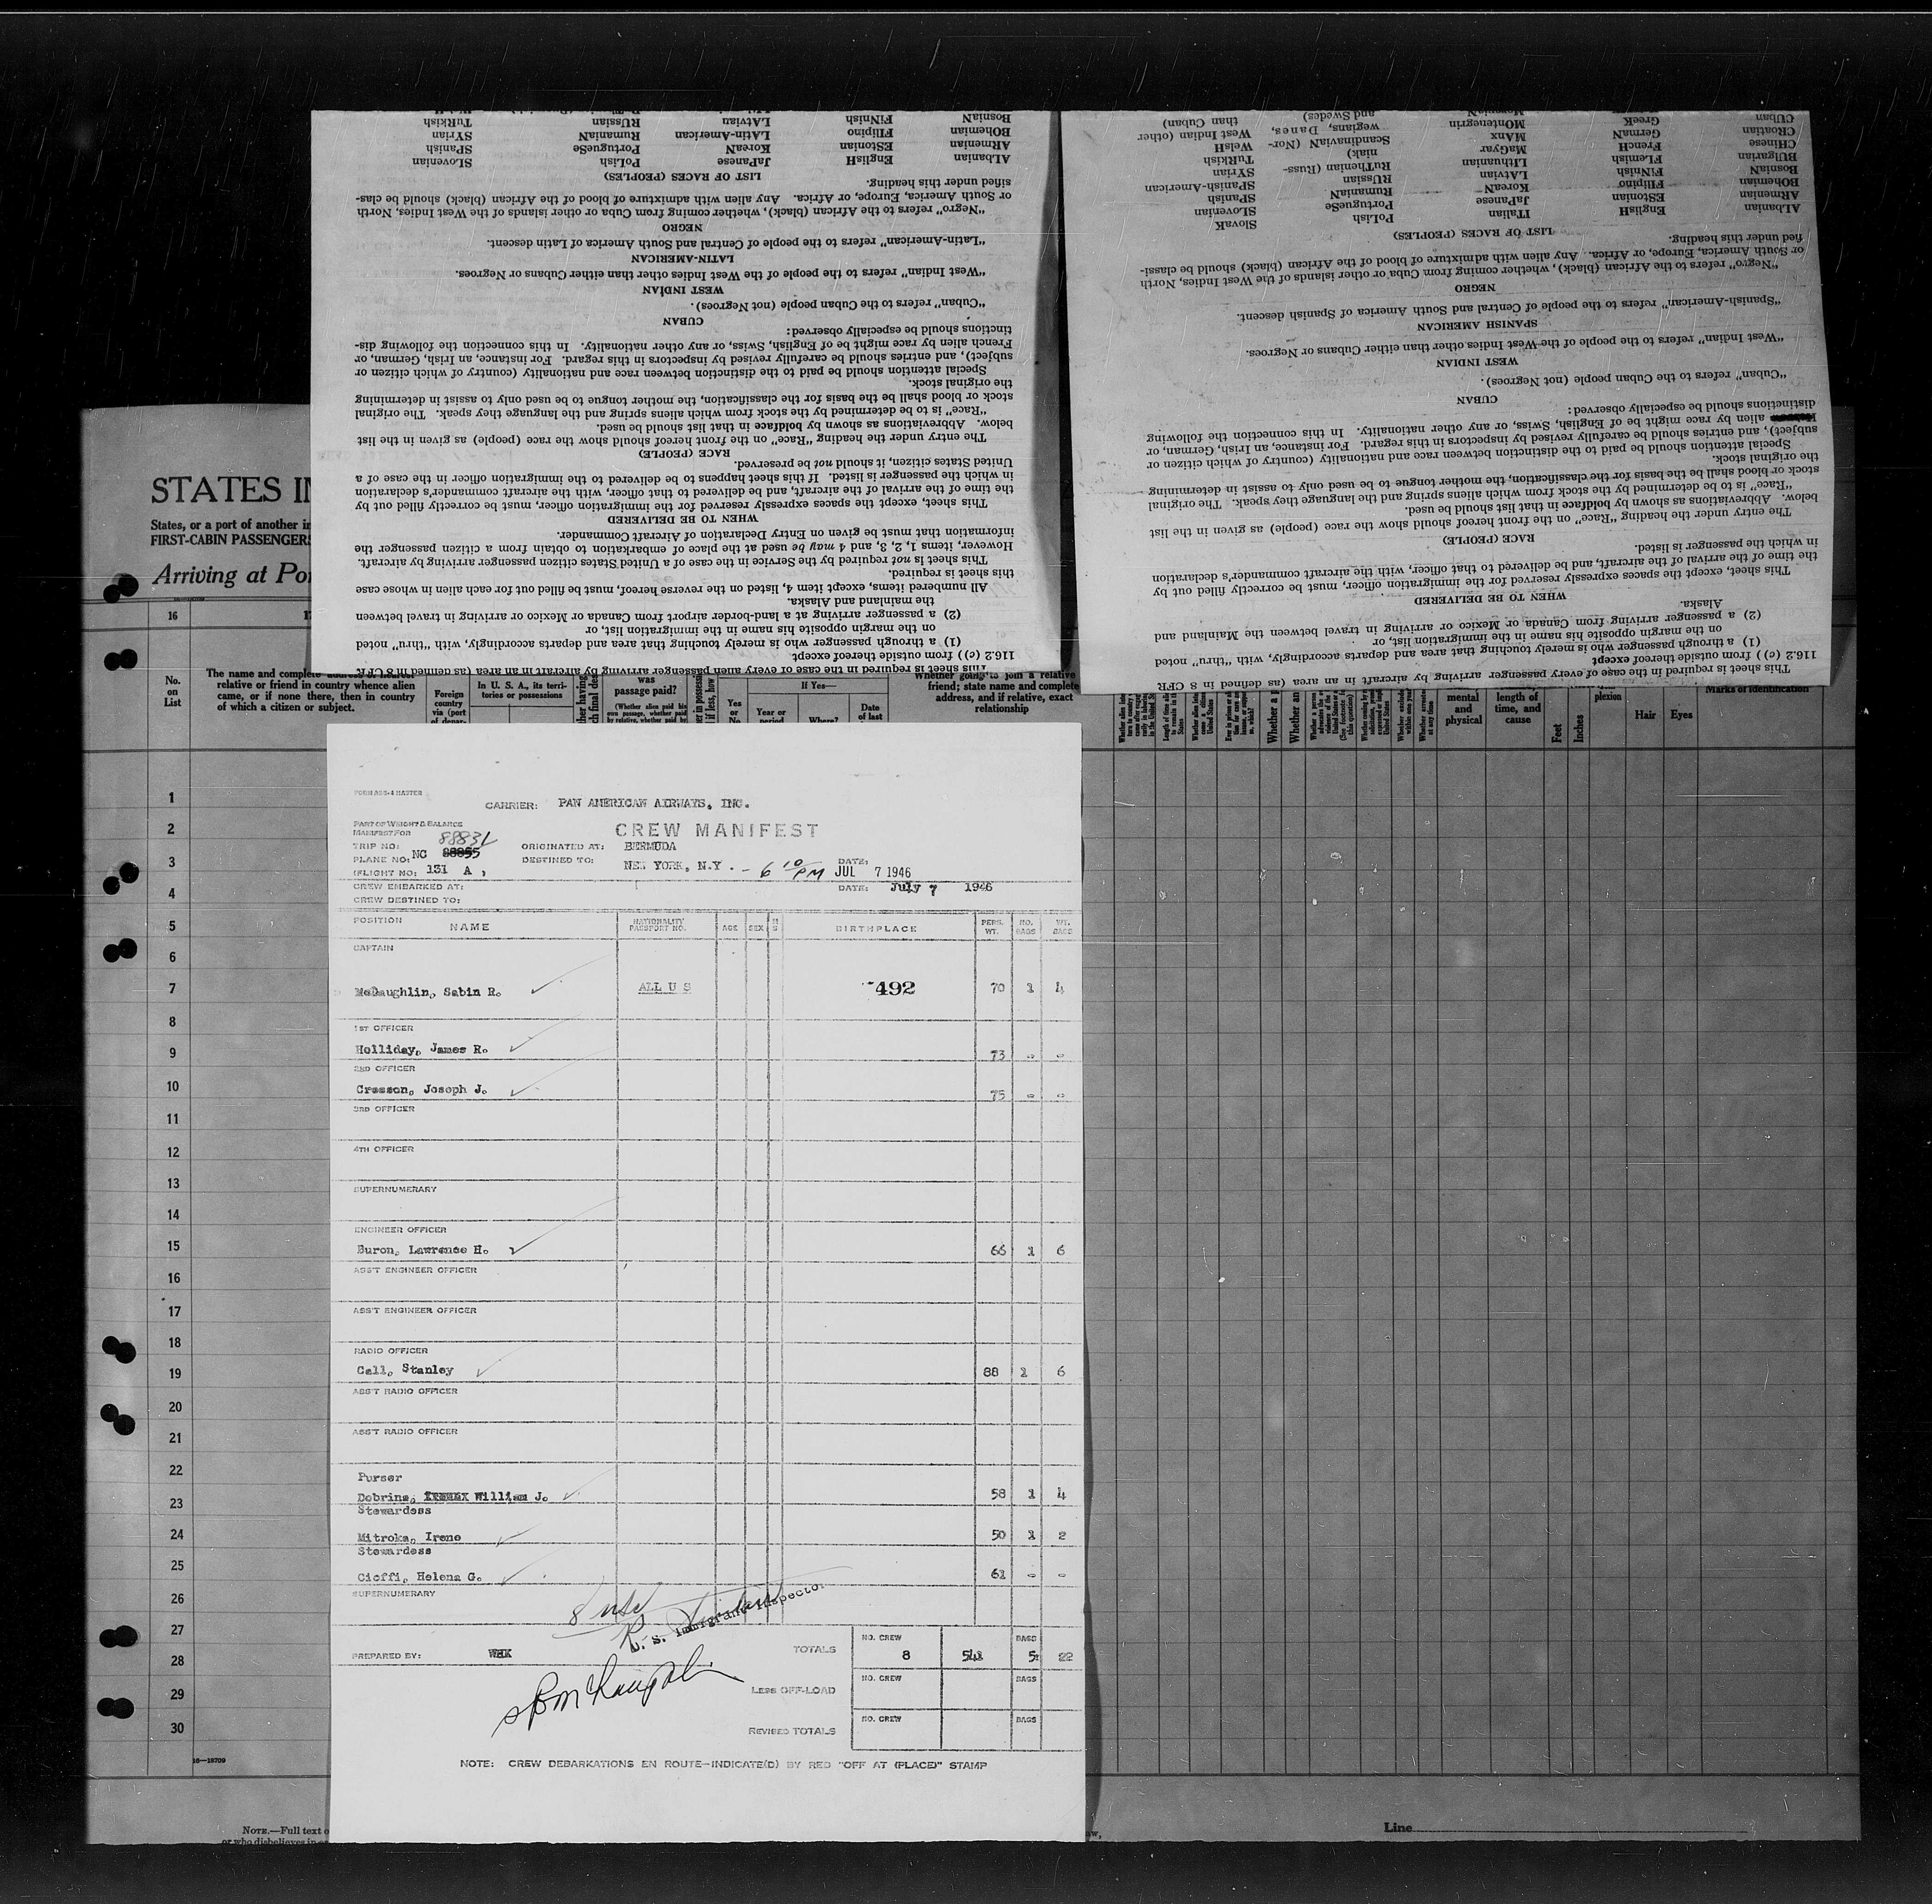 This sheet is required in the case of every alien passenger arriving by aircraft in an area (as defined in 8 CFR
116.2 (c)) from outside thereof except
(1) a through passenger who is merely touching that area and departs accordingly, with “thru” noted
on the margin opposite his name in the immigration list, or
(2) a passenger arriving at a land-border airport from Canada or Mexico or arriving in travel between
the mainland and Alaska.
All numbered items, except item 4, listed on the reverse hereof, must be filled out for each alien in whose case
this sheet is required.
This sheet is not required by the Service in the case of a United States citizen passenger arriving by aircraft.
However, items 1, 2, 3, and 4 may be used at the place of embarkation to obtain from a citizen passenger the
information that must be given on Entry Declaration of Aircraft Commander.
WHEN TO BE DELIVERED
This sheet, except the spaces expressly reserved for the immigration officer, must be correctly filled out by
the time of the arrival of the aircraft, and be delivered to that officer, with the aircraft commander's declaration
in which the passenger is listed. If this sheet happens to be delivered to the immigration officer in the case of a
United States citizen, it should not be preserved.
RACE (PEOPLE)
The entry under the heading “Race” on the front hereof should show the race (people) as given in the list
below. Abbreviations as shown by boldface in that list should be used.
“Race” is to be determined by the stock from which aliens spring and the language they speak. The original
stock or blood shall be the basis for the classification, the mother tongue to be used only to assist in determining
the original stock.
Special attention should be paid to the distinction between race and nationality (country of which citizen or
subject), and entries should be carefully revised by inspectors in this regard. For instance, an Irish, German, or
French alien by race might be of English, Swiss, or any other nationality. In this connection the following dis-
tinctions should be especially observed:
CUBAN
“Cuban” refers to the Cuban people (not Negroes).
WEST INDIAN
“West Indian” refers to the people of the West Indies other than either Cubans or Negroes.
LATIN-AMERICAN
“Latin-American” refers to the people of Central and South America of Latin descent.
NEGRO
“Negro” refers to the African (black), whether coming from Cuba or other islands of the West Indies, North
or South America, Europe, or Africa. Any alien with admixture of blood of the African (black) should be clas-
sified under this heading.
LIST OF RACES (PEOPLES)
ALbanian EnglisH JaPanese PoLish SLovenian
ARmenian EStonian KoreaN PortuguesE SPanish
BOhemian FIlipino LAtin-American RumaniaN SYrian
BosniaN FiNnish LAtvian RUssian TuRkish
This sheet is required in the case of every alien passenger arriving by aircraft in an area (as defined in 8 CFR
116.2 (c)) from outside thereof except
(1) a through passenger who is merely touching that area and departs accordingly, with “thru” noted
on the margin opposite his name in the immigration list, or
(2) a passenger arriving from Canada or Mexico or arriving in travel between the Mainland and
Alaska.
WHEN TO BE DELIVERED
This sheet, except the spaces expressly reserved for the immigration officer, must be correctly filled out by
the time of the arrival of the aircraft, and be delivered to that officer, with the aircraft commander's declaration
in which the passenger is listed.
RACE (PEOPLE)
The entry under the heading “Race” on the front hereof should show the race (people) as given in the list
below. Abbreviations as shown by boldface in that list should be used.
“Race” is to be determined by the stock from which aliens spring and the language they speak. The original
stock or blood shall be the basis for the classification, the mother tongue to be used only to assist in determining
the original stock.
Special attention should be paid to the distinction between race and nationality (country of which citizen or
subject), and entries should be carefully revised by inspectors in this regard. For instance, an Irish, German, or
alien by race might be of English, Swiss, or any other nationality. In this connection the following
distinctions should be especially observed:
CUBAN
“Cuban” refers to the Cuban people (not Negroes).
WEST INDIAN
“West Indian” refers to the people of the West Indies other than either Cubans or Negroes.
SPANISH AMERICAN
“Spanish-American” refers to the people of Central and South America of Spanish descent.
NEGRO
“Negro” refers to the African (black), whether coming from Cuba or other islands of the West Indies, North
or South America, Europe, or Africa. Any alien with admixture of blood of the African (black) should be classi-
fied under this heading.
LIST OF RACES (PEOPLES)
ALbanian EnglisH ITalian PoLish SlovaK
ARmenian EStonian JaPanese PortuguesE SLovenian
BOhemian FIlipino KoreaN RumaniaN SPanish
BosniaN FiNnish LAtvian RUssian SPanish-American
BUlgarian FLemish LIthuanian RuThenian (Russ- SYrian
CHinese FrencH MaGyar niak) TuRkish
CRoatian GermaN MAnx ScandinaviaN (Nor- WelsH
CUban GreeK MOntenegrin wegians, Danes, West Indian (other
and Swedes) than Cuban)
STATES
States, or a port of another
FIRST-CABIN PASSENGERS
Arriving at
16
No.
on
List
The name and complete address of nearest
relative or friend in country whence alien
came, or if none there, then in country
of which a citizen or subject.
Foreign
country
via (port
of depar-
In U. S. A., its terri-
tories or possessions
was
passage paid?
(Whether alien paid his
own passage, whether paid
Yes
or
No
If Yes—
Year or
period
Where?
Date
of last
Whether going to join a relative
friend; state name and complete
address, and if relative, exact
relationship
mental
and
physical
length of
time, and
cause
Feet
Inches
plexion
Hair
Eyes
Marks of identification
1
2
3
4
5
6
7
8
9
10
11
12
13
14
15
16
17
18
19
20
21
22
23
24
25
26
27
28
29
30
16—18709
NOTE.—Full text
Line
CARRIER: PAN AMERICAN AIRWAYS, INC.
PART OF WEIGHT & BALANCE
MANIFEST FOR
CREW MANIFEST
TRIP NO: ORIGINATED AT: BERMUDA
PLANE NO: NC 88855 DESTINED TO: NEW YORK, N.Y. - 6 10 PM DATE: JUL 7 1946
(FLIGHT NO: 131 A )
CREW EMBARKED AT: DATE: July 7 1946
CREW DESTINED TO:
POSITION NAME NATIONALITY PASSPORT NO. AGE SEX BIRTHPLACE PERS. WT. NO. BAGS WT. BAGS
CAPTAIN
McLaughlin, Sabin R. ALL U S 492 70 1 4
1ST OFFICER
Holliday, James R. 73 - -
2ND OFFICER
Cresson, Joseph J. 75 - -
3RD OFFICER
4TH OFFICER
SUPERNUMERARY
ENGINEER OFFICER
Buron, Lawrence H. 66 1 6
ASS'T ENGINEER OFFICER
ASS'T ENGINEER OFFICER
RADIO OFFICER
Call, Stanley 88 1 6
ASS'T RADIO OFFICER
ASS'T RADIO OFFICER
Purser
Dobrins, William J. 58 1 4
Stewardess
Mitroka, Irene 50 1 2
Stewardess
Cioffi, Helena G. 61 - -
SUPERNUMERARY
U. S. Immigrant Inspector
PREPARED BY: WHK TOTALS NO. CREW 8 541 BAGS 5 22
LESS OFF-LOAD NO. CREW BAGS
REVISED TOTALS NO. CREW BAGS
NOTE: CREW DEBARKATIONS EN ROUTE—INDICATE(D) BY RED "OFF AT (PLACE)" STAMP